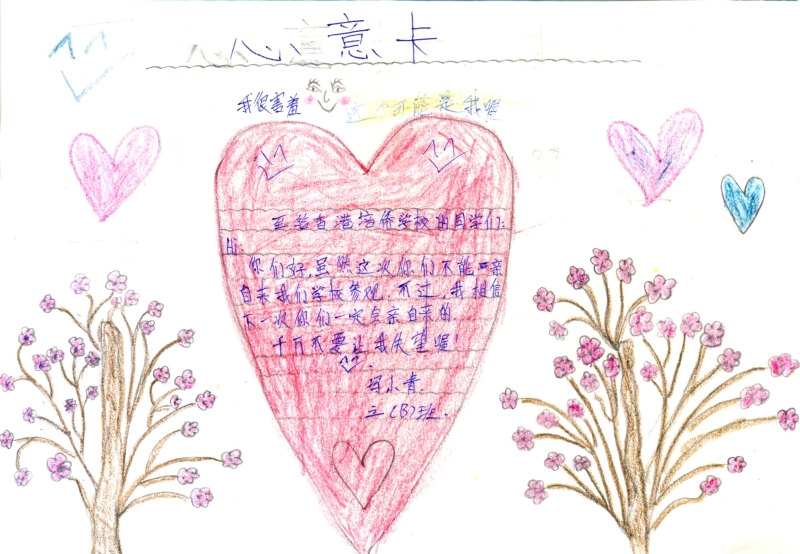 心意卡
我很害羞
这个可能是我喔
至给香港培侨学校的同学们:
Hi:
你们好,虽然这次你们不能亲
自来我们学校参观.不过,我相信
下一次你们一定会亲自来的.
千万不要让我失望喔!
冯小青
三(B)班.